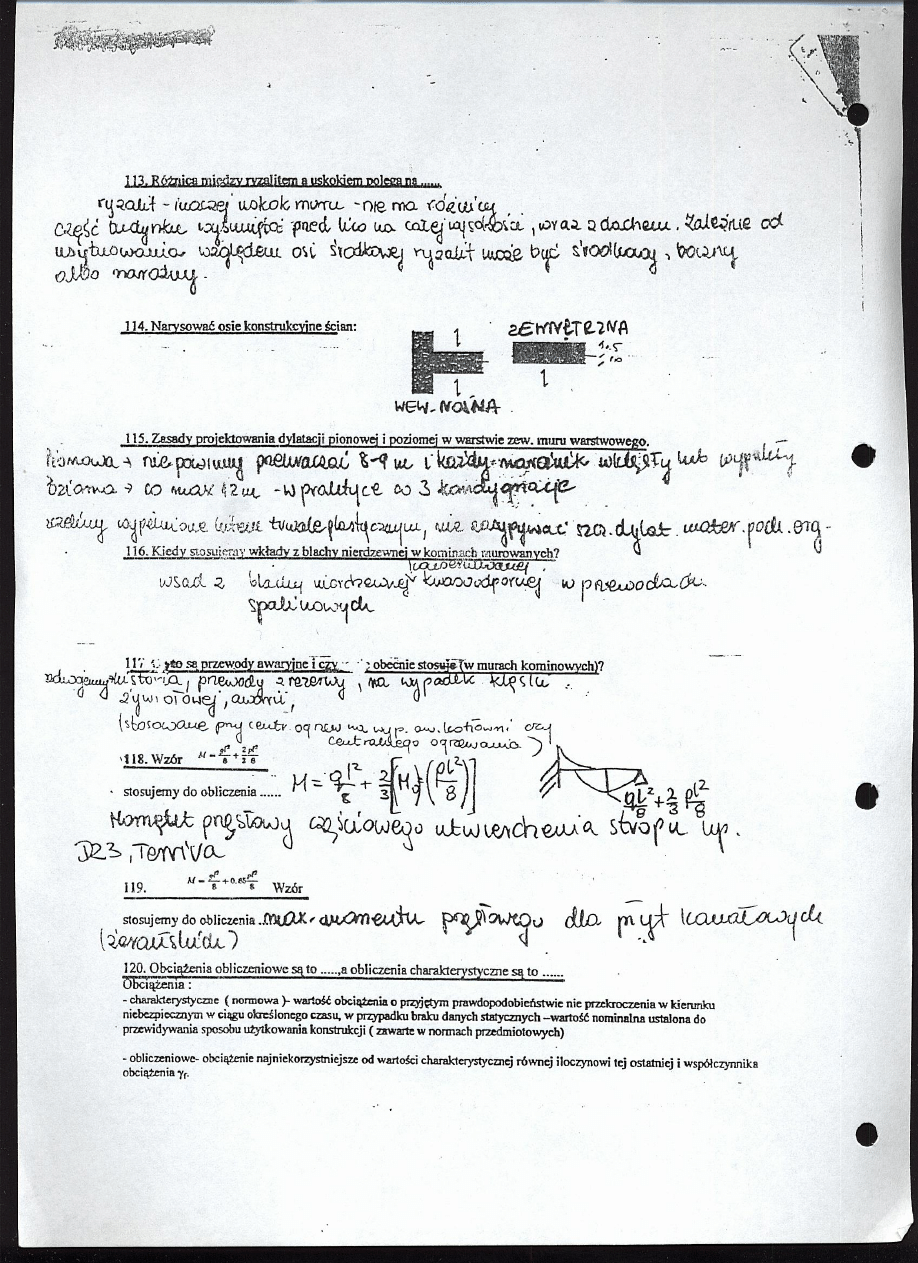 113. Różnica między ryzalitem a uskokiem polega na ......
ryzalit - inaczej uskok muru - nie ma różnicy
część budynku wysunięta przed lico na całej wysokości, wraz z dachem. Zależnie od
usytuowania względem osi środkowej ryzalit może być środkowy, boczny
albo narożny.
114. Narysować osie konstrukcyjne ścian:
ZEWNĘTRZNA
1
1
1
WEW-NOŚNA
115. Zasady projektowania dylatacji pionowej i poziomej w warstwie zew. muru warstwowego.
Pionowa → nie powinny przekraczać 8-9 m i każdy narożnik wklęsły lub wypukły
pozioma → co max 12m - w praktyce co 3 kondygnacje
szczeliny wypełnione kitem trwale plastycznym, nie zasypywać szcz. dylat. mater. poch. org.
116. Kiedy stosujemy wkłady z blachy nierdzewnej w kominach murowanych?
wsad z blachy nierdzewnej kwasoodpornej w przewodach
spalinowych
117 to są przewody awaryjne i czy obecnie stosuje (w murach kominowych)?
historia, przewody z rezerwy, na wypadek klęski
żywiołowej, awarii,
(stosowane przy centr. ogrzew na wyp. aw. kotłowni czy
centralnego ogrzewania)
118. Wzór M = ql²/8 + 2/3 pl²/8
stosujemy do obliczenia ...... M = ql²/8 + 2/3 [M₀ = (pl²/8)]
ql²/8 + 2/3 pl²/8
Moment przęsłowy częściowego utwierdzenia stropu np.
DZ3, Teriva
119. M = ql²/8 + 0.85 pl²/8 Wzór
stosujemy do obliczenia .. max. momentu przęsłowego dla płyt kanałowych
(żerańskich)
120. Obciążenia obliczeniowe są to .....,a obliczenia charakterystyczne są to ......
Obciążenia :
- charakterystyczne ( normowa )- wartość obciążenia o przyjętym prawdopodobieństwie nie przekroczenia w kierunku
niebezpiecznym w ciągu określonego czasu, w przypadku braku danych statycznych –wartość nominalna ustalona do
przewidywania sposobu użytkowania konstrukcji ( zawarte w normach przedmiotowych)
- obliczeniowe- obciążenie najniekorzystniejsze od wartości charakterystycznej równej iloczynowi tej ostatniej i współczynnika
obciążenia γf.